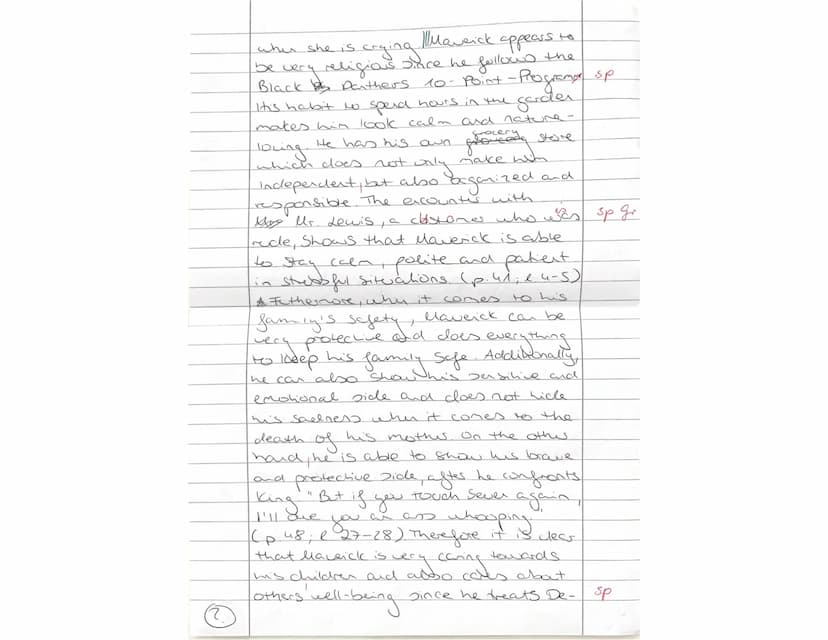 when she is crying. Maverick appears to
be very religious since he follows the
Black Panthers 10-Point-Program. sp
His habit to spend hours in the garden
makes him look calm and nature-
loving. He has his own grocery store
which does not only make him
independent, but also organized and
responsible. The encounter with
Mr. Lewis, a customer who was sp Gr
rude, shows that Maverick is able
to stay calm, polite and patient
in stressful situations. (p. 41, l 4-5)
Futhermore, when it comes to his
family's safety, Maverick can be
very protective and does everything
to keep his family safe. Additionally,
he can also show his sensitive and
emotional side and does not hide
his sadness when it comes to the
death of his mother. On the other
hand, he is able to show his brave
and protective side, after he confronts
King "But if you touch Seven again,
I'll owe you an ass whooping"
(p. 48, l 27-28) Therefore it is clear
that Maverick is very caring towards
his children and also cares about
others' well-being since he treats De- sp
2.